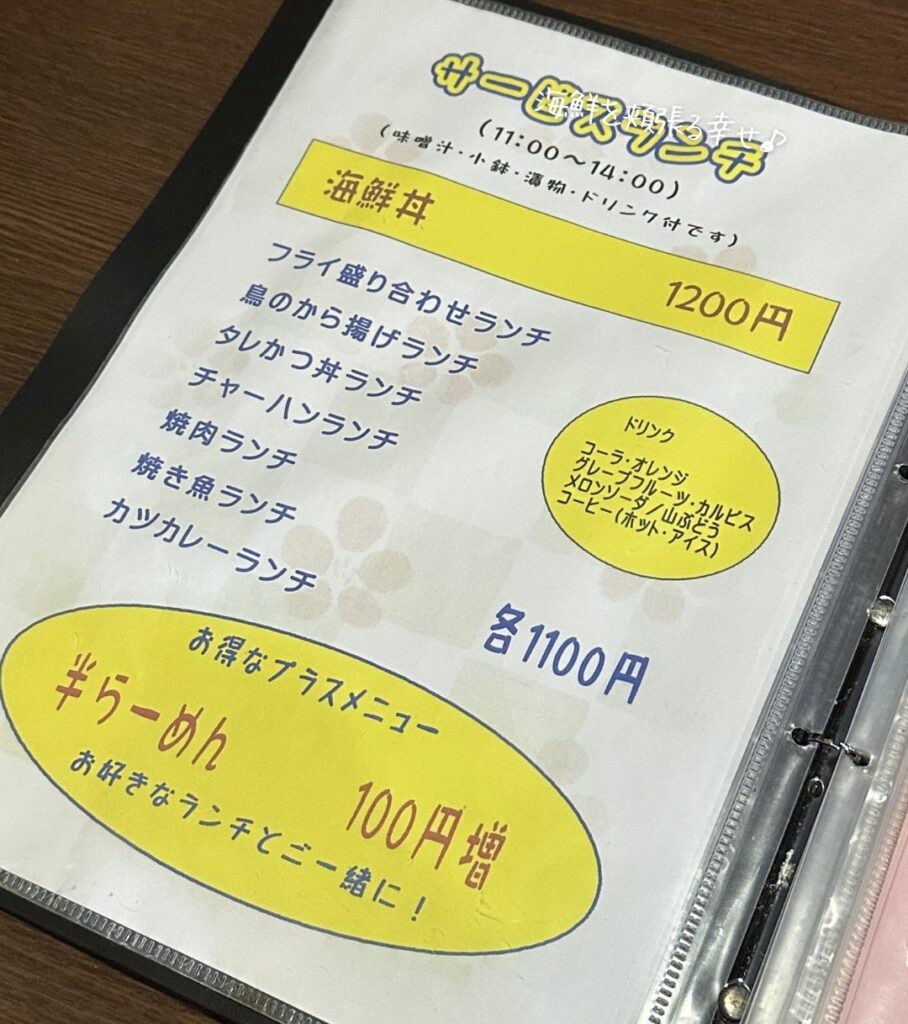 サービスランチ
海鮮を頬張る幸せ♪
(11:00～14:00)
(味噌汁・小鉢・漬物・ドリンク付です)
海鮮丼
1200円
フライ盛り合わせランチ
鳥のから揚げランチ
タレかつ丼ランチ
チャーハンランチ
焼肉ランチ
焼き魚ランチ
カツカレーランチ
ドリンク
コーラ・オレンジ
グレープフルーツ・カルピス
メロンソーダ/山ぶどう
コーヒー(ホット・アイス)
各1100円
お得なプラスメニュー
半らーめん
100円増
お好きなランチとご一緒に!